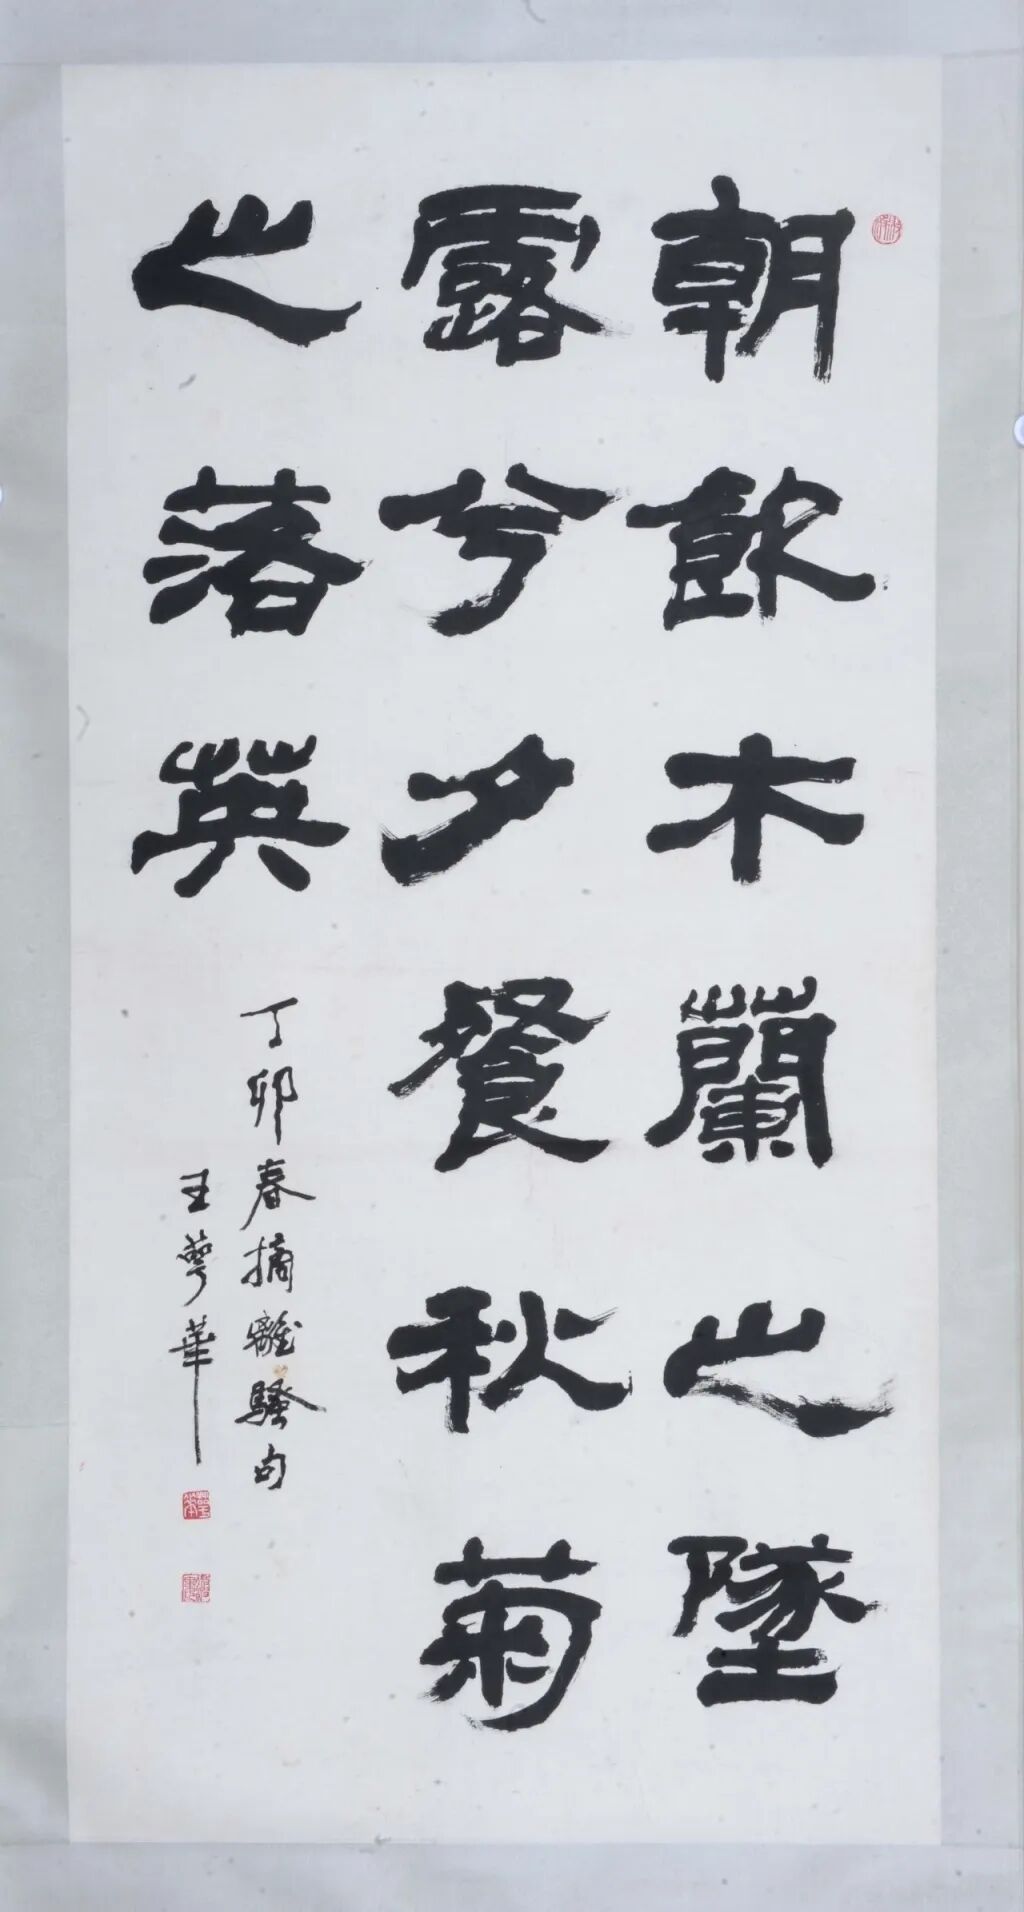 朝飲木蘭之墜
露兮夕餐秋菊
之落英
丁卯春摘離騷句
王萼華